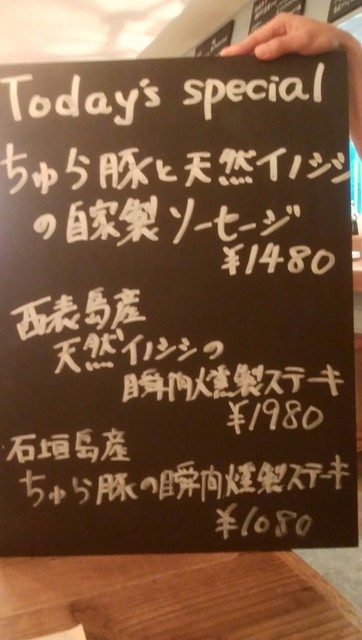 Today's special
ちゅら豚と天然イノシシ
の自家製ソーセージ
¥1480
西表島産
天然イノシシの
瞬間燻製ステーキ
¥1980
石垣島産
ちゅら豚の瞬間燻製ステーキ
¥1080